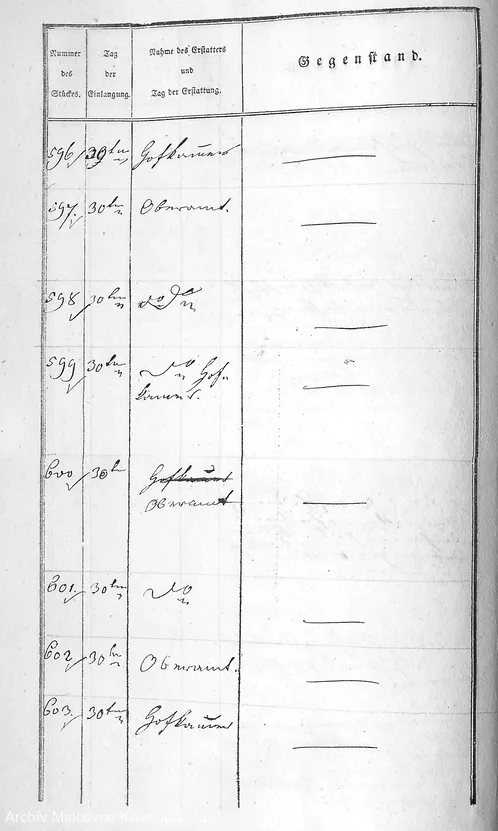 Nummer
des
Stückes.
Tag
der
Einlangung.
Nahme des Erstatters
und
Tag der Erstattung.
Gegenstand.
596 39ten Hofkammer
597. 30ten Oberamt.
598 30ten do
599 30ten do Hof-
kammer.
600 30t Hofkammer
Oberamt
601. 30ten do
602 30ten Oberamt.
603. 30ten Hofkammer
Archiv Mincovne